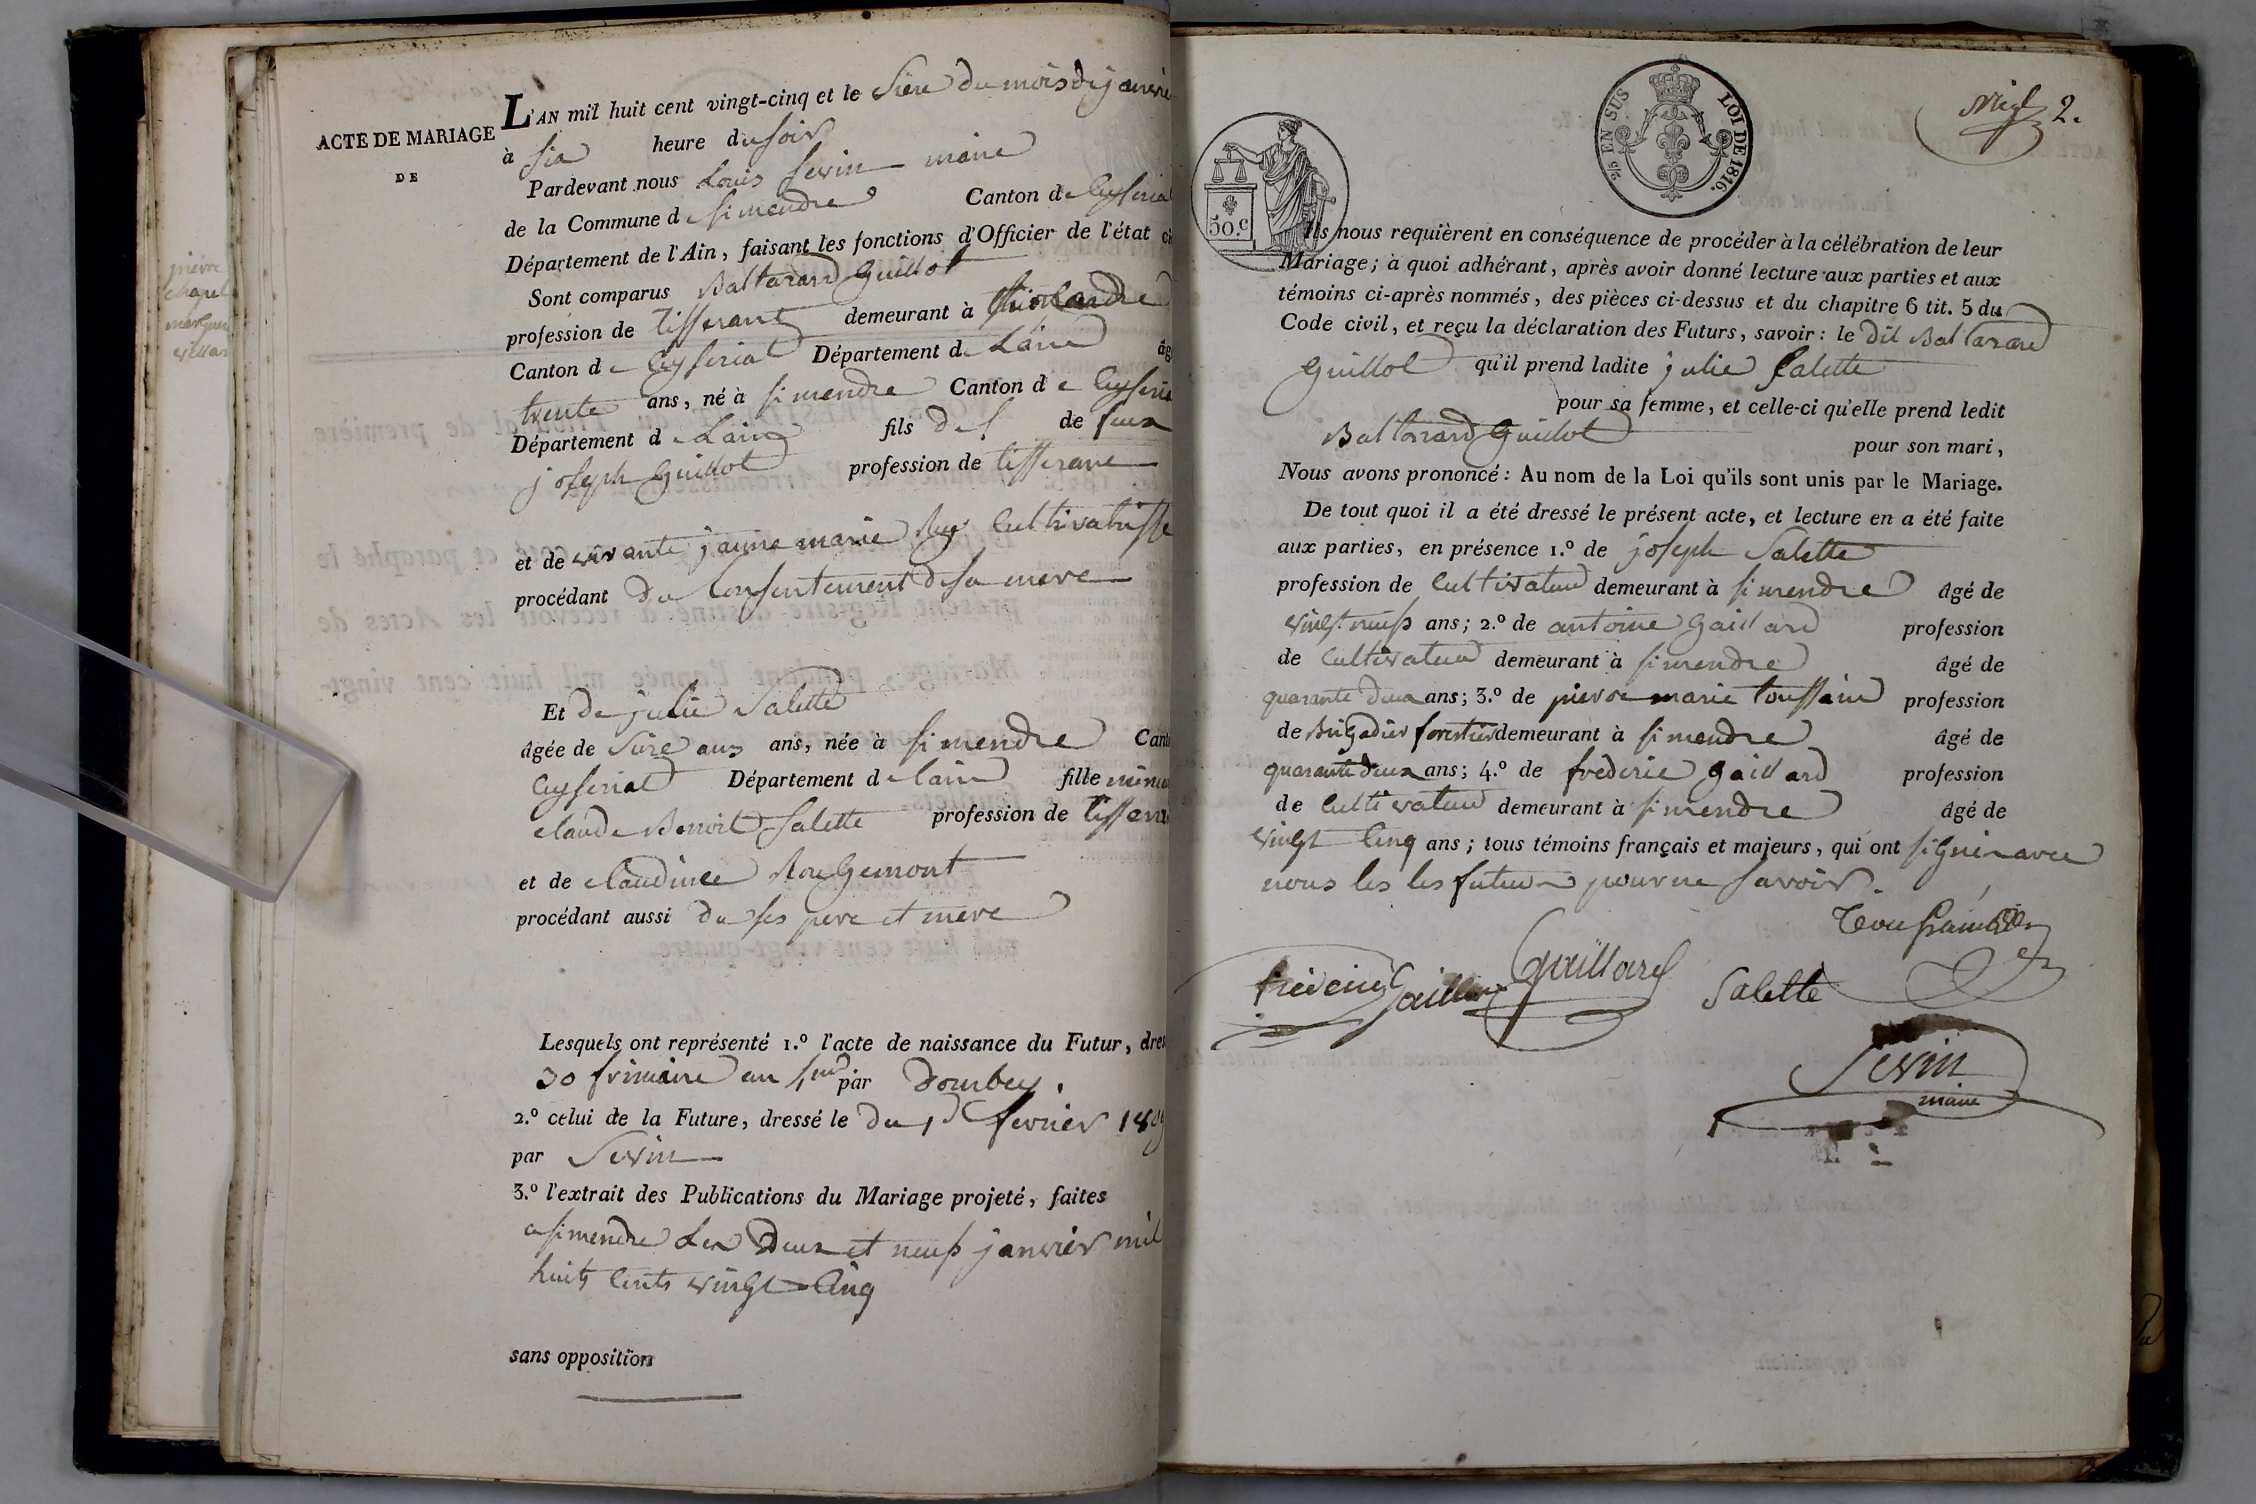 ACTE DE MARIAGE
DE
L'AN mil huit cent vingt-cinq et le Sieze du mois de janvie
à six heure du soir
Pardevant nous Louis Sevin maire
de la Commune de simendre Canton de Ceyseria
Département de l'Ain, faisant les fonctions d'Officier de l'état ci
Sont comparus Baltazard Guillot
profession de tisserant demeurant à
Canton de Ceyseriat Département de Lain âg
trente ans, né à simendre Canton de Ceyseria
Département de Lain fils de de feux
joseph Guillot profession de tisserant
et de vivante janne marie cultivatrisse
procédant du Consentement de sa mere
Et de julie Salette
âgée de Sieze ans ans, née à simendre Cant
Ceyseriat Département de lain fille mineu
claude Benoit Salette profession de tisseran
et de claudinee Rougemont
procédant aussi du ses pere et mere
Lesquels ont représenté 1.º l'acte de naissance du Futur, dres
30 frimaire an par Dombey.
2.º celui de la Future, dressé le du fevrier
par Sevin
3.º l'extrait des Publications du Mariage projeté, faites
a simendre Les Deux et neuf janvier mil
huits Cents vingt Cinq
sans opposition
2/5 EN SUS LOI DE 1816.
50.c
2.
Ils nous requièrent en conséquence de procéder à la célébration de leur
Mariage; à quoi adhérant, après avoir donné lecture aux parties et aux
témoins ci-après nommés, des pièces ci-dessus et du chapitre 6 tit. 5 du
Code civil, et reçu la déclaration des Futurs, savoir: le dit Baltazard
Guillot qu'il prend ladite julie Salette
pour sa femme, et celle-ci qu'elle prend ledit
Baltazard Guillot pour son mari,
Nous avons prononcé: Au nom de la Loi qu'ils sont unis par le Mariage.
De tout quoi il a été dressé le présent acte, et lecture en a été faite
aux parties, en présence 1.º de joseph Salette
profession de Cultivateur demeurant à simendre âgé de
vingt neuf ans; 2.º de antoine Gaillard profession
de Cultivateur demeurant à simendre âgé de
quarante deux ans; 3.º de pierre marie toussain profession
de Brigadier forestier demeurant à simendre âgé de
quarante deux ans; 4.º de frederic Gaillard profession
de Cultivateur demeurant à simendre âgé de
vingt Cinq ans; tous témoins français et majeurs, qui ont signé avec
nous les les futeur pour ne savoir.
frédéric Gaillard Gaillard Salette
Sevin
maire